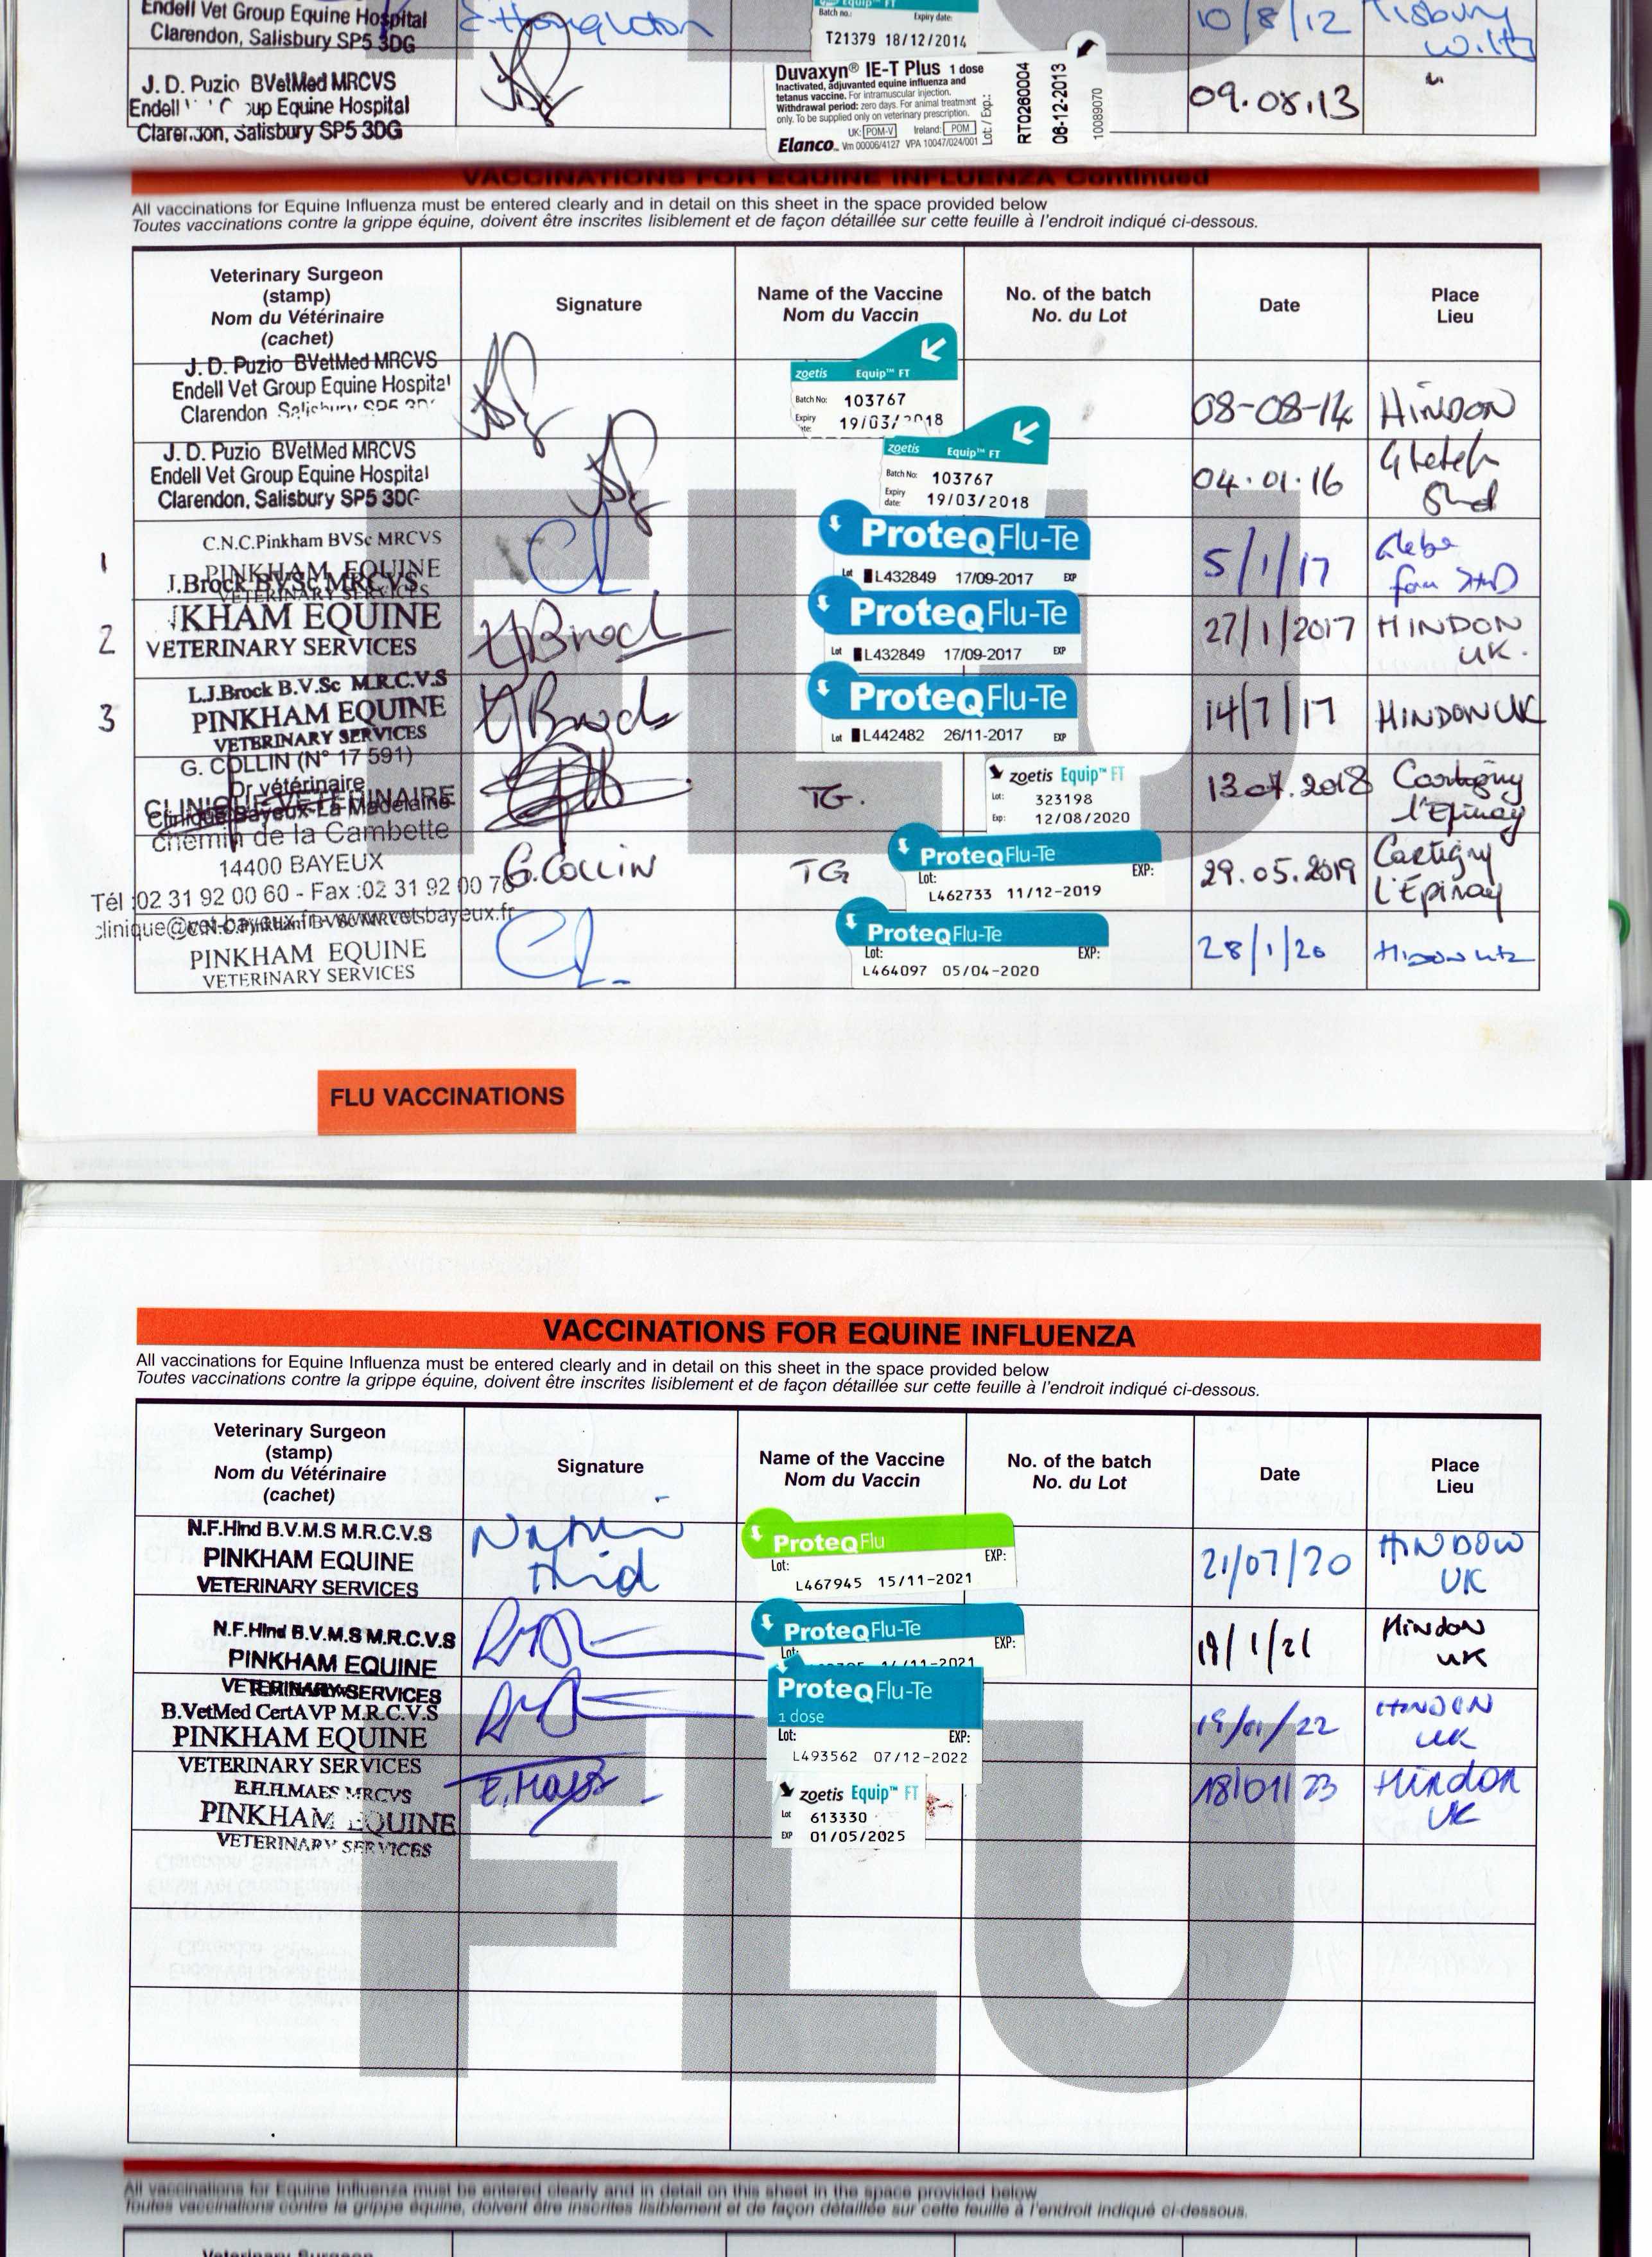 Endell Vet Group Equine Hospital
Clarendon, Salisbury SP5 3DG
Batch no.: Expiry date:
T21379 18/12/2014
10/8/12 Tisbury
Wilts
J. D. Puzio BVetMed MRCVS
Endell oup Equine Hospital
Clarendon, Salisbury SP5 3DG
Duvaxyn® IE-T Plus 1 dose
Inactivated, adjuvanted equine influenza and
tetanus vaccine. For intramuscular injection.
Withdrawal period: zero days. For animal treatment
only. To be supplied only on veterinary prescription.
UK: POM-V Ireland: POM
Elanco Vm 00006/4127 VPA 10047/024/001
Lot / Exp.:
RT0260004
06-12-2013
10089070
09.08.13 "
VACCINATIONS FOR EQUINE INFLUENZA Continued
All vaccinations for Equine Influenza must be entered clearly and in detail on this sheet in the space provided below
Toutes vaccinations contre la grippe équine, doivent être inscrites lisiblement et de façon détaillée sur cette feuille à l'endroit indiqué ci-dessous.
Veterinary Surgeon
(stamp)
Nom du Vétérinaire
(cachet)
Signature
Name of the Vaccine
Nom du Vaccin
No. of the batch
No. du Lot
Date
Place
Lieu
J. D. Puzio BVetMed MRCVS
Endell Vet Group Equine Hospital
Clarendon Salisbury SP5 3D
zoetis Equip™ FT
Batch No: 103767
Expiry date: 19/03/2018
08-08-14 HINDON
J. D. Puzio BVetMed MRCVS
Endell Vet Group Equine Hospital
Clarendon, Salisbury SP5 3DG
zoetis Equip™ FT
Batch No: 103767
Expiry date: 19/03/2018
04.01.16
1
C.N.C.Pinkham BVSc MRCVS
PINKHAM EQUINE
VETERINARY SERVICES
ProteqFlu-Te
Lot L432849 17/09-2017 EXP
5/1/17 Glebe
farm
2
J.Brock BVSc MRCVS
KHAM EQUINE
VETERINARY SERVICES
LJBrock
ProteqFlu-Te
Lot L432849 17/09-2017 EXP
27/1/2017 HINDON
UK.
3
L.J.Brock B.V.Sc M.R.C.V.S
PINKHAM EQUINE
VETERINARY SERVICES
LJBrock
ProteqFlu-Te
Lot L442482 26/11-2017 EXP
14/7/17 HINDON UK
G. COLLIN (N° 17 591)
Dr vétérinaire
CLINIQUE VETERINAIRE
Clinique Bayeux-La Madelaine
Chemin de la Cambette
14400 BAYEUX
Tél :02 31 92 00 60 - Fax :02 31 92 00 76
TG.
zoetis Equip™ FT
Lot: 323198
Exp: 12/08/2020
13.07.2018 Cartigny
l'Epinay
G. COLLIN
TG
ProteqFlu-Te
Lot: EXP:
L462733 11/12-2019
29.05.2019 Cartigny
L'Epinay
C.N.C.Pinkham BVSc MRCVS
PINKHAM EQUINE
VETERINARY SERVICES
ProteqFlu-Te
Lot: EXP:
L464097 05/04-2020
28/1/20 Hindon UK
FLU
FLU VACCINATIONS
VACCINATIONS FOR EQUINE INFLUENZA
All vaccinations for Equine Influenza must be entered clearly and in detail on this sheet in the space provided below
Toutes vaccinations contre la grippe équine, doivent être inscrites lisiblement et de façon détaillée sur cette feuille à l'endroit indiqué ci-dessous.
Veterinary Surgeon
(stamp)
Nom du Vétérinaire
(cachet)
Signature
Name of the Vaccine
Nom du Vaccin
No. of the batch
No. du Lot
Date
Place
Lieu
N.F.Hind B.V.M.S M.R.C.V.S
PINKHAM EQUINE
VETERINARY SERVICES
Hind
ProteqFlu
Lot: EXP:
L467945 15/11-2021
21/07/20 HINDON
UK
N.F.Hind B.V.M.S M.R.C.V.S
PINKHAM EQUINE
VETERINARY SERVICES
ProteqFlu-Te
Lot: EXP:
/11-2021
19/1/21 Hindon
UK
B.VetMed CertAVP M.R.C.V.S
PINKHAM EQUINE
VETERINARY SERVICES
ProteqFlu-Te
1 dose
Lot: EXP:
L493562 07/12-2022
19/01/22 HINDON
UK
E.H.H.MAES MRCVS
PINKHAM EQUINE
VETERINARY SERVICES
E. Maes
zoetis Equip™ FT
Lot 613330
EXP 01/05/2025
18/01/23 Hindon
UK
FLU
All vaccinations for Equine Influenza must be entered clearly and in detail on this sheet in the space provided below
Toutes vaccinations contre la grippe équine, doivent être inscrites lisiblement et de façon détaillée sur cette feuille à l'endroit indiqué ci-dessous.
Veterinary Surgeon